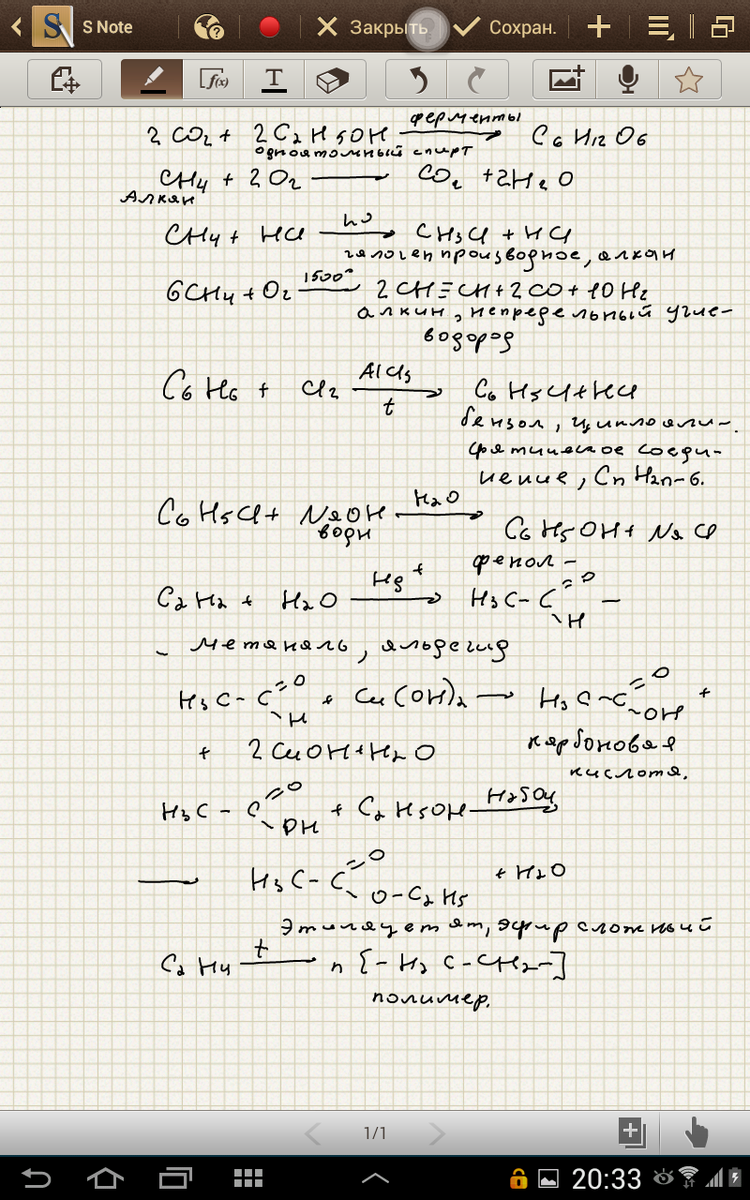 S Note
Закрыть
Сохран.
f(x)
T
ферменты
2CO2 + 2C2H5OH ⟶ C6H12O6
одноатомный спирт
CH4 + 2O2 ⟶ CO2 + 2H2O
Алкан
hυ
CH4 + HCl ⟶ CH3Cl + HCl
галогенпроизводное, алкан
1500°
6CH4 + O2 ⟶ 2CH≡CH + 2CO + 10H2
алкин, непредельный угле-
водород
AlCl3
C6H6 + Cl2 ⟶ C6H5Cl + HCl
t
бензол, циклоали-
фатическое соеди-
нение, CnH2n-6.
H2O
C6H5Cl + NaOH ⟶ C6H5OH + NaCl
водн
фенол -
Hg+
C2H2 + H2O ⟶ H3C-C=O -
-H
- метаналь, альдегид
H3C-C=O + Cu(OH)2 ⟶ H3C-C=O +
-H
-OH
+ 2CuOH + H2O
карбоновая
кислота.
H2SO4
H3C-C=O + C2H5OH ⟶
-OH
⟶ H3C-C=O + H2O
O-C2H5
Этилацетат, эфир сложный
t
C2H4 ⟶ n[-H2C-CH2-]
полимер.
1/1
20:33